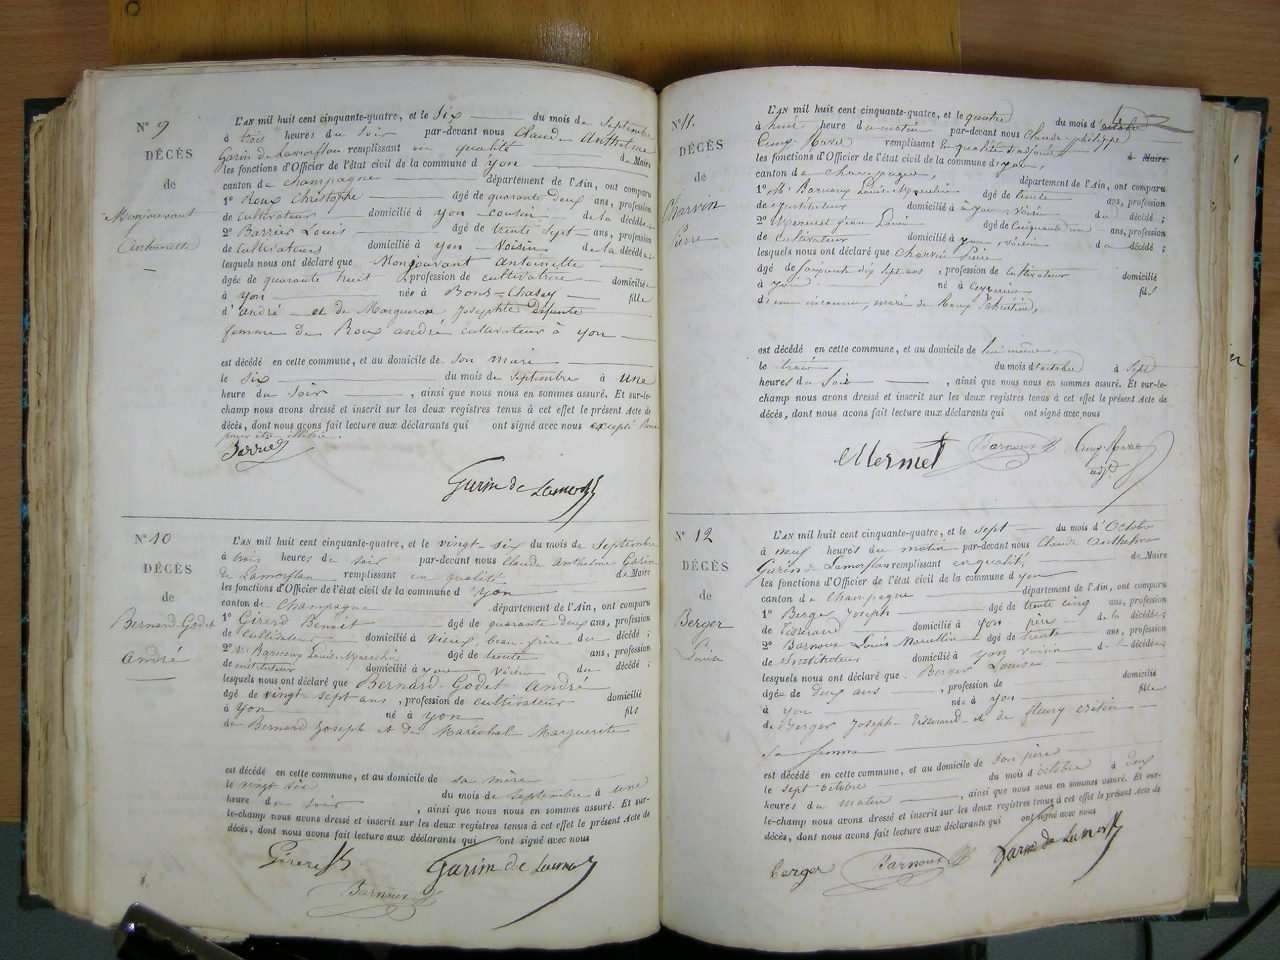 N° 9
DÉCÈS
de
Monjouvant
Antoinette
L'AN mil huit cent cinquante-quatre, et le six du mois de Septembre
à trois heures du soir par-devant nous Claude Anthelme
Garin de Lamorflan remplissant en qualité de Maire
les fonctions d'Officier de l'état civil de la commune d'yon
canton de Champagne département de l'Ain, ont comparu
1° Roux Christophe âgé de quarante deux ans, profession
de cultivateur domicilié à yon cousin de la décédée
2° Barrier Louis âgé de trente sept ans, profession
de cultivateur domicilié à yon Voisin de la décédée
lesquels nous ont déclaré que Monjouvant Antoinette
âgée de quarante huit profession de cultivatrice domiciliée
à yon née à Bons-Chasey fille
d'andré et de Marqueron Josephte défunte
femme de Roux andré cultivateur à yon
est décédé en cette commune, et au domicile de son mari
le six du mois de septembre à une
heure du soir, ainsi que nous nous en sommes assuré. Et sur-le-
champ nous avons dressé et inscrit sur les deux registres tenus à cet effet le présent Acte de
décès, dont nous avons fait lecture aux déclarants qui ont signé avec nous excepté Roux
pour être illitéré.
Barrier
Garin de Lamorflan
N° 10
DÉCÈS
de
Bernard-Godet
André
L'AN mil huit cent cinquante-quatre, et le vingt-six du mois de Septembre
à trois heures du soir par-devant nous Claude Anthelme Garin
de Lamorflan remplissant en qualité de Maire
les fonctions d'Officier de l'état civil de la commune d'yon
canton de Champagne département de l'Ain, ont comparu
1° Girerd Benoit âgé de quarante deux ans, profession
de Cultivateur domicilié à Vieux, beau-frère du décédé ;
2° Mr Barnoux Louis Marcelin âgé de trente ans, profession
de instituteur domicilié à yon Voisin du décédé ;
lesquels nous ont déclaré que Bernard-Godet André
âgé de vingt-sept ans, profession de cultivateur domicilié
à Yon né à yon fils
de Bernard Joseph et de Maréchal Marguerite
est décédé en cette commune, et au domicile de sa mère
le vingt six du mois de septembre à une
heure du soir, ainsi que nous nous en sommes assuré. Et sur-
le-champ nous avons dressé et inscrit sur les deux registres tenus à cet effet le présent Acte de
décès, dont nous avons fait lecture aux déclarants qui ont signé avec nous
Girerd
Garin de Lamorflan
Barnoux
N° 11.
DÉCÈS
de
Charvin
Pierre
L'AN mil huit cent cinquante-quatre, et le quatre du mois d'octobre
à huit heure du matin par-devant nous Claude philippe
Cuny-Ravet remplissant en qualité d'adjoint de Maire
les fonctions d'Officier de l'état civil de la commune d'yon,
canton de Champagne, département de l'Ain, ont comparu
1° Mr Barnoux Louis Marcelin âgé de trente ans, profession
de Instituteur domicilié à yon, Voisin du décédé ;
2° Mermet Jean Louis âgé de Cinquante un ans, profession
de cultivateur domicilié à yon, voisin du décédé ;
lesquels nous ont déclaré que Charvin Pierre
âgé de soixante dix sept ans, profession de cultivateur domicilié
à yon né à Ceyzérieu fils
d'inconnu,
est décédé en cette commune, et au domicile de lui-même,
le trois du mois d'octobre à sept
heures du soir, ainsi que nous nous en sommes assuré. Et sur-le-
champ nous avons dressé et inscrit sur les deux registres tenus à cet effet le présent Acte de
décès, dont nous avons fait lecture aux déclarants qui ont signé avec nous
Mermet Barnoux Cuny-Ravet
adjt
N° 12
DÉCÈS
de
Berger
Louise
L'AN mil huit cent cinquante-quatre, et le sept du mois d'Octobre
à neuf heures du matin par-devant nous Claude Anthelme
Garin de Lamorflan remplissant en qualité, de Maire
les fonctions d'Officier de l'état civil de la commune d'yon
canton de Champagne département de l'Ain, ont comparu
1° Berger Joseph âgé de trente cinq ans, profession
de Tisserand domicilié à yon père de la décédée ;
2° Barnoux Louis Marcellin âgé de trente ans, profession
de Instituteur domicilié à yon voisin de la décédée
lesquels nous ont déclaré que Berger Louise
âgée de deux ans, profession de domicilié
à yon née à Yon fille
de Berger Joseph Tisserand et de fleury
sa femme
est décédé en cette commune, et au domicile de son père
le sept octobre du mois d'octobre à deux
heures du matin, ainsi que nous nous en sommes assuré. Et sur-
le-champ nous avons dressé et inscrit sur les deux registres tenus à cet effet le présent Acte de
décès, dont nous avons fait lecture aux déclarants qui ont signé avec nous
Berger Barnoux Garin de Lamorflan